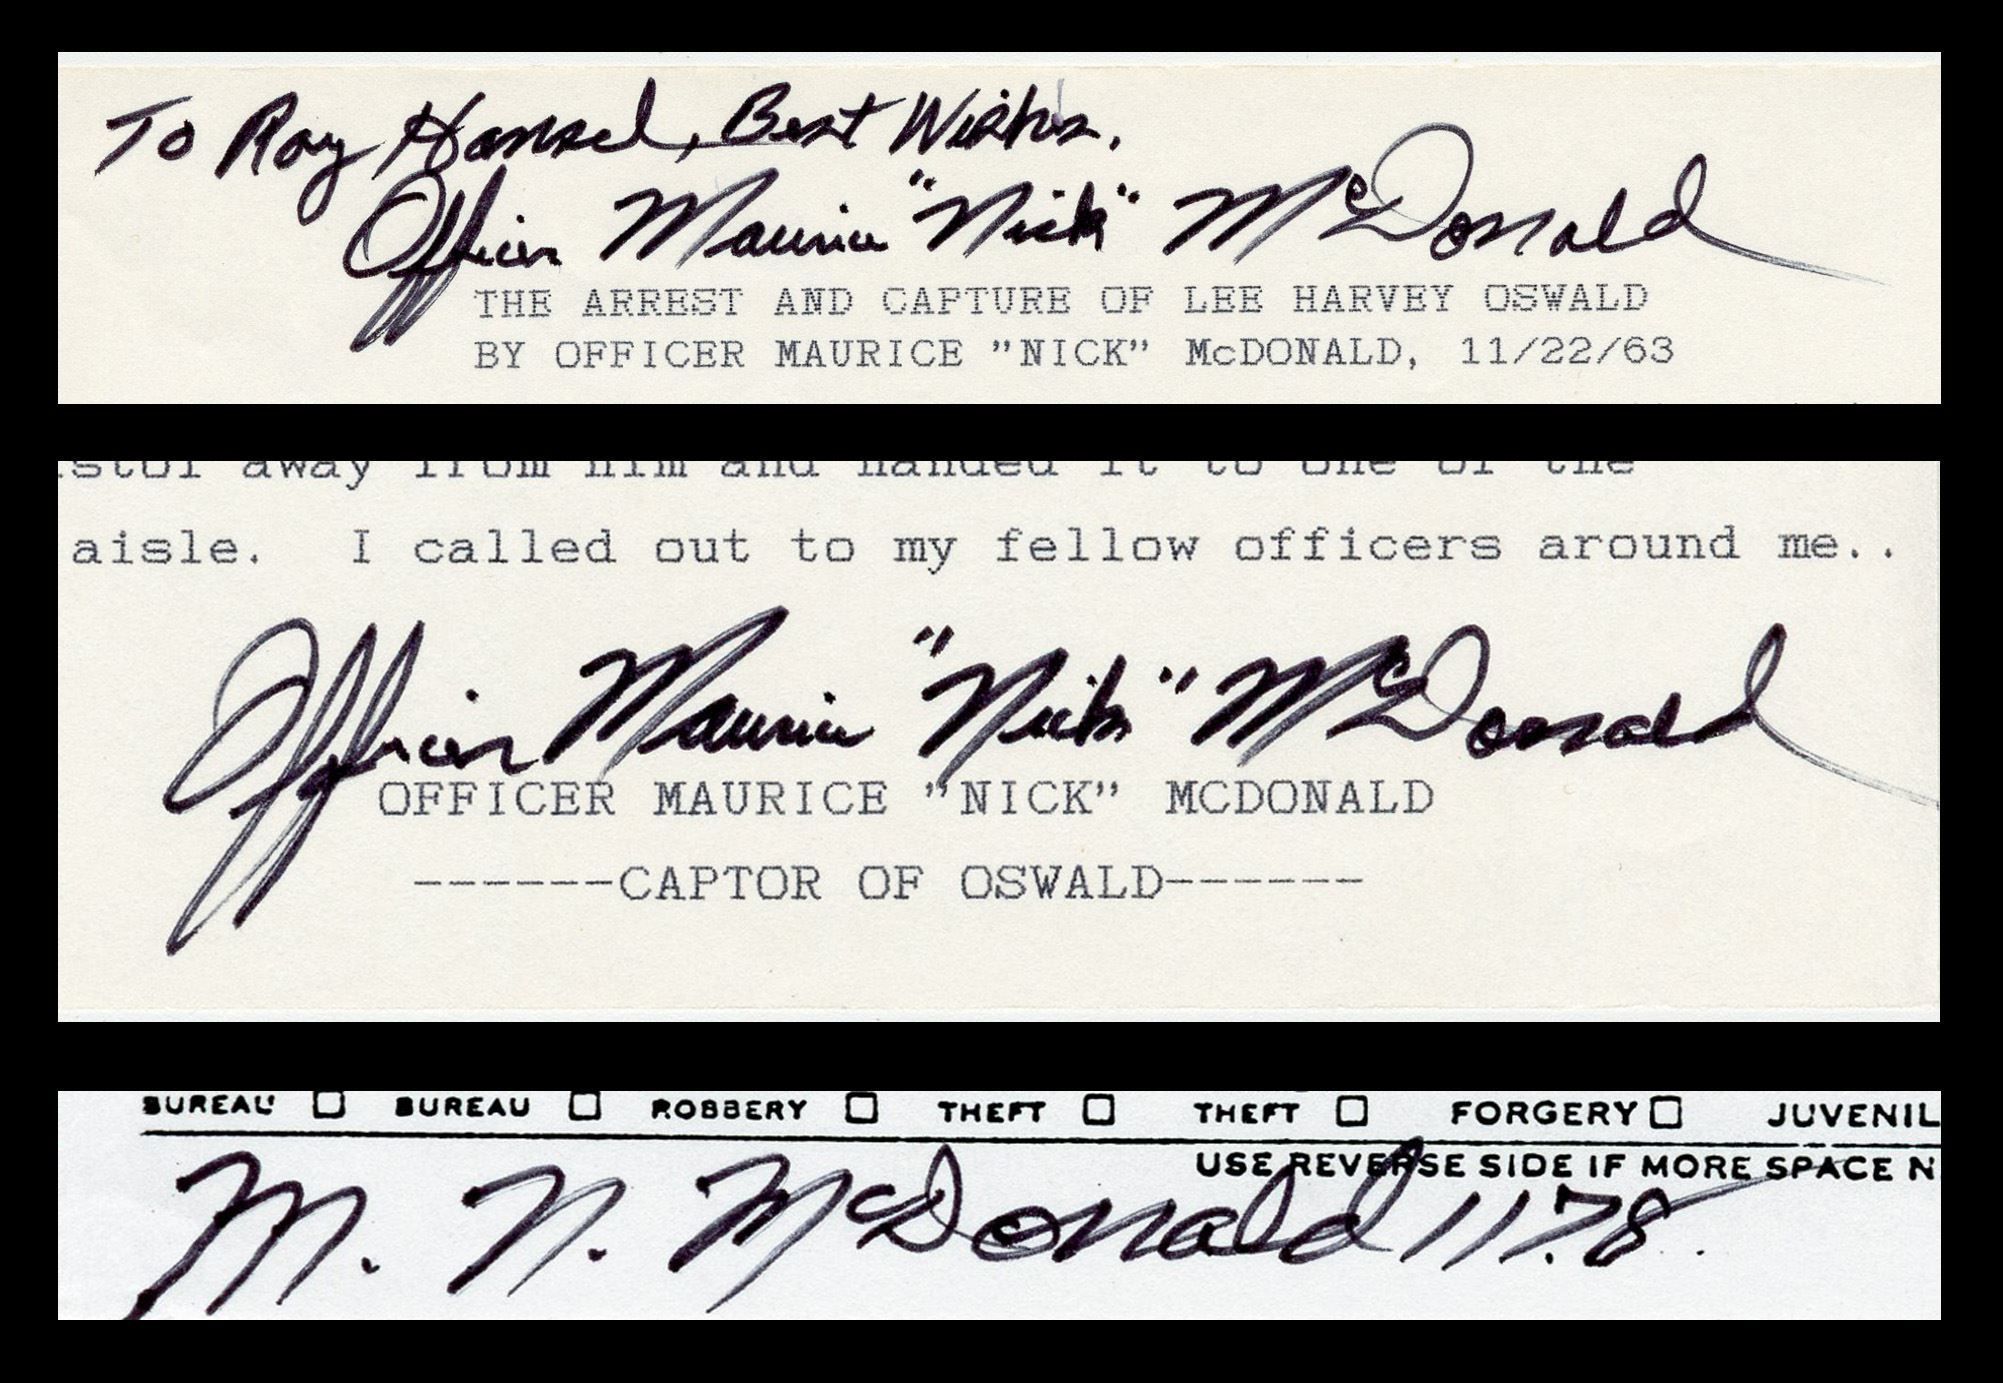 To Roy Hansel, Best Wishes,
Officer Maurice "Nick" McDonald
THE ARREST AND CAPTURE OF LEE HARVEY OSWALD
BY OFFICER MAURICE "NICK" McDONALD, 11/22/63
istol away from him and handed it to one of the
aisle. I called out to my fellow officers around me..
Officer Maurice "Nick" McDonald
OFFICER MAURICE "NICK" MCDONALD
------CAPTOR OF OSWALD------
BUREAU □ BUREAU □ ROBBERY □ THEFT □ THEFT □ FORGERY □ JUVENIL
USE REVERSE SIDE IF MORE SPACE N
M. N. McDonald 1178.